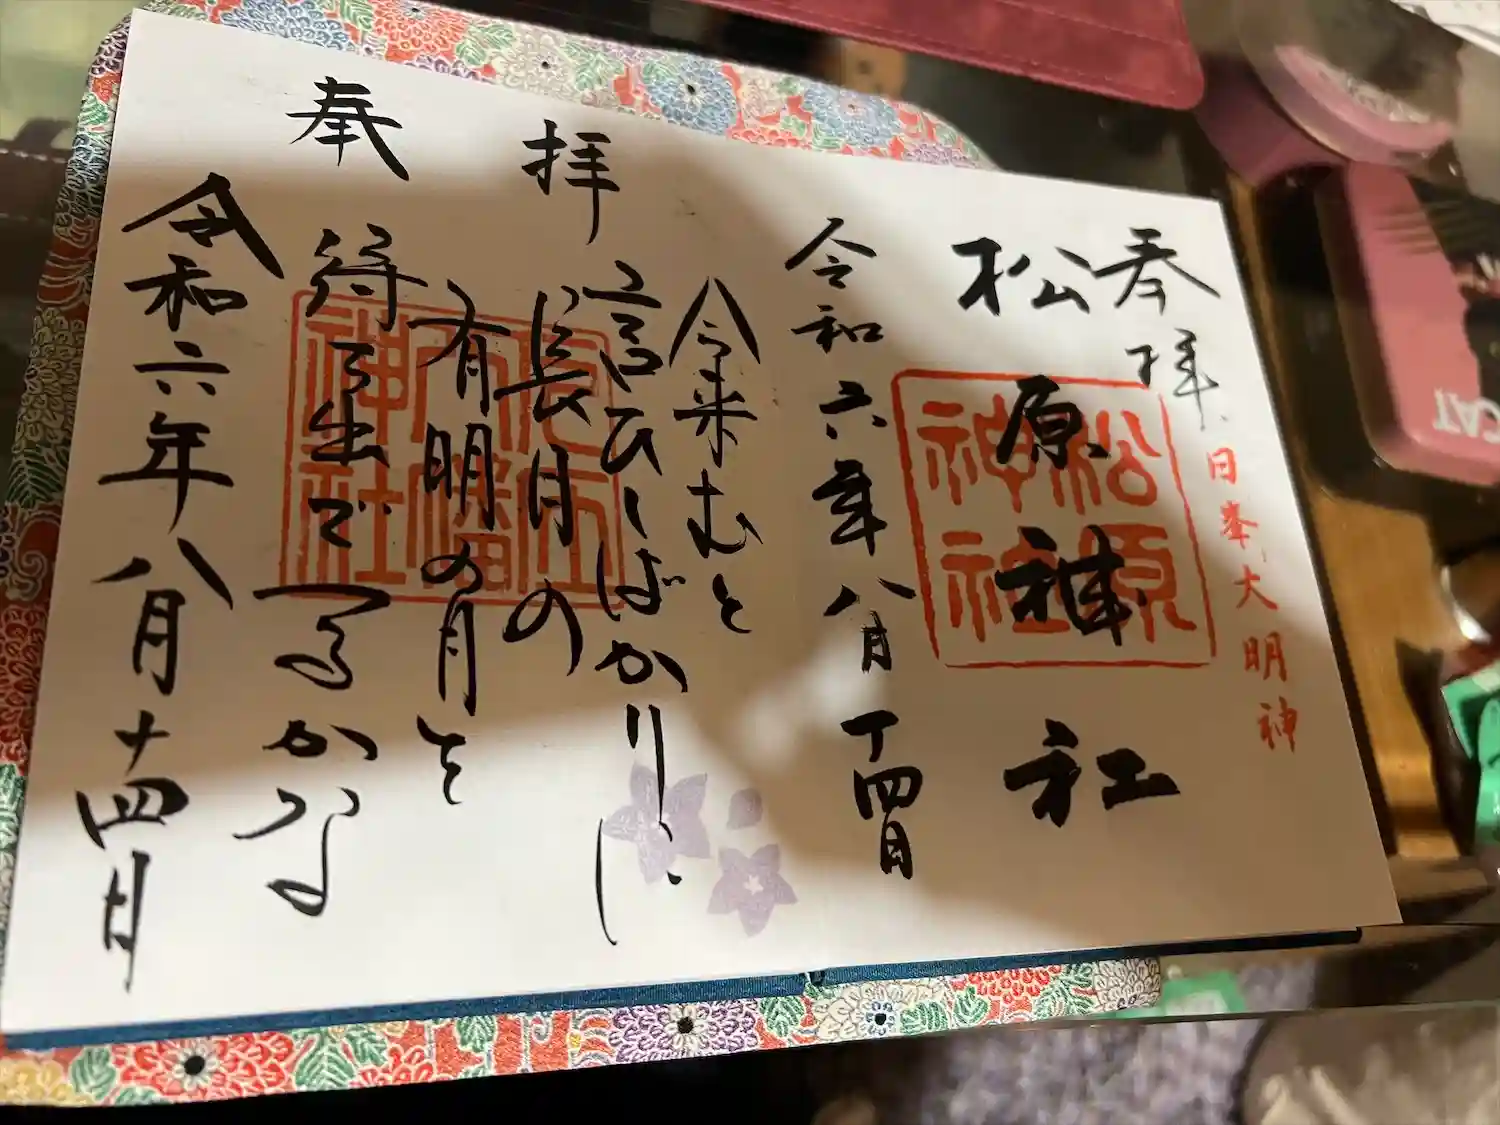 日峯大明神
奉拝
松原神社
松原
神社
令和六年八月十四日
奉拝
今来むと
言ひしばかりに
長月の
有明の月を
待ち出でつるかな
八幡
神社
令和六年八月十四日
CAT